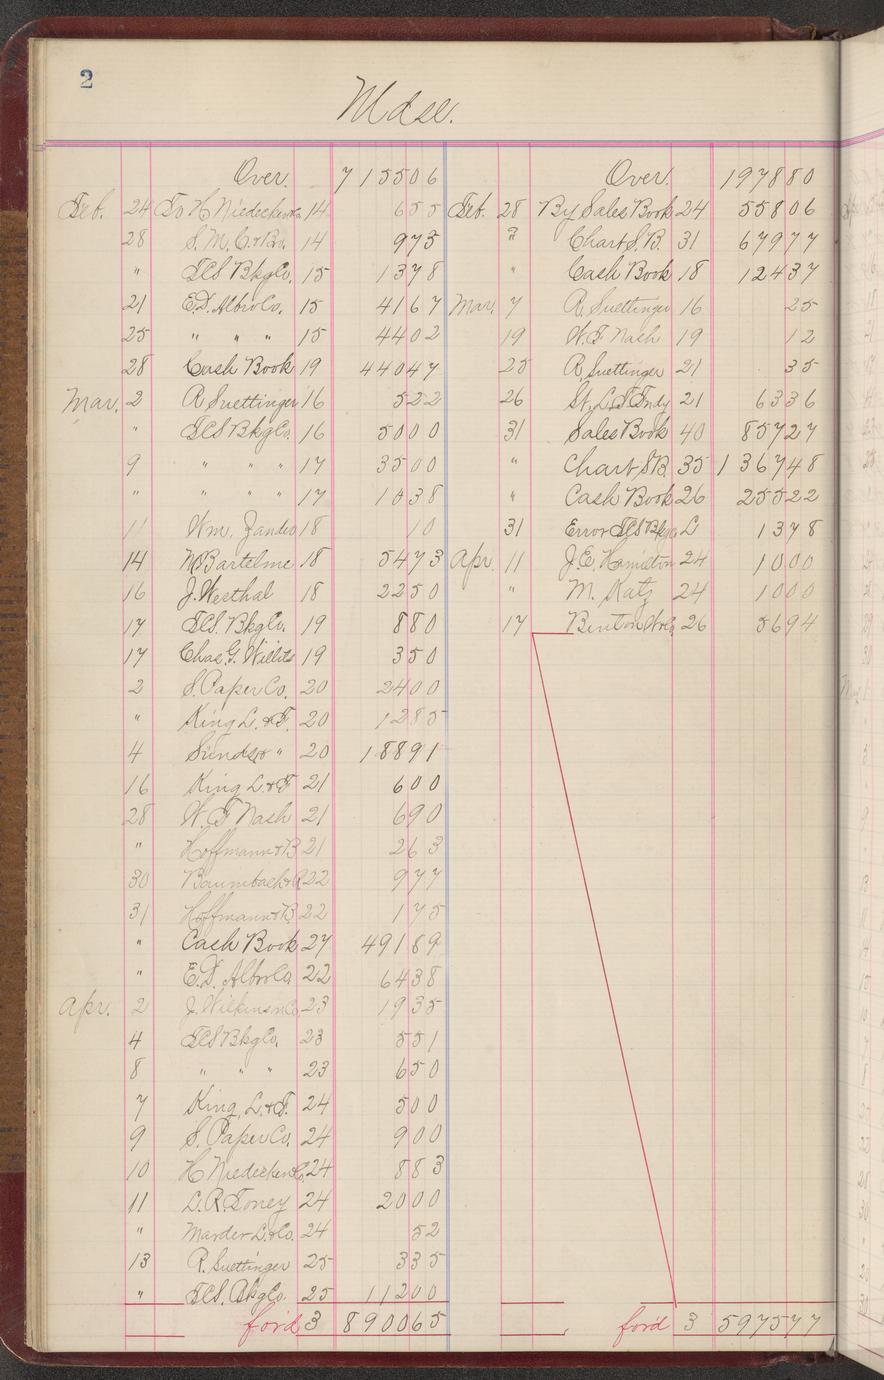 2
Mdse.
Over. 7 155 06
Feb. 24 To H Niedecken 14 6 55
28 S. M. C. & Bro. 14 9 75
" TCS Bkg Co. 15 13 78
21 E.D. Albro Co. 15 41 67
25 " " " 15 44 02
28 Cash Book 19 440 47
Mar. 2 R Suettinger 16 5 22
" TCS Bkg Co. 16 50 00
9 " " " 17 35 00
" " " " 17 10 38
11 Wm. Zander 18 10
14 M Bartelme 18 54 73
16 J. Westhal 18 22 50
17 TCS. Bkg Co. 19 8 80
17 Chas. G. Willits 19 3 50
2 S. Paper Co. 20 24 00
" King L. & F. 20 12 85
4 Sunds & " 20 188 91
16 King L. & F 21 6 00
28 W. F Nash 21 6 90
" Hoffmann & B 21 2 63
30 Baumbach & R 22 9 77
31 Hoffmann & B 22 1 75
" Cash Book 27 491 89
" E.D. Albro Co. 22 64 38
Apr. 2 J. Wilkinson Co. 23 19 35
4 TCS Bkg Co. 23 5 51
8 " " " 23 6 50
7 King, L. & F. 24 5 00
9 S. Paper Co. 24 9 00
10 H Niedecken Co. 24 8 83
11 L. R. Toney 24 20 00
" Marder L. & Co. 24 52
13 R. Suettinger 25 3 35
" TCS. Bkg Co. 25 112 00
for'd 3 8900 65
Over. 1978 80
Feb. 28 By Sales Book 24 558 06
" Chart S. B. 31 679 77
" Cash Book 18 124 37
Mar. 7 R. Suettinger 16 25
19 W. F Nash 19 12
25 R. Suettinger 21 35
26 St. L. S. Indy 21 63 36
31 Sales Book 40 857 27
" Chart S B. 35 1367 48
" Cash Book 26 255 22
31 Error TCS Bkg Co L 13 78
Apr. 11 J. E. Hamilton 24 10 00
" M. Katz 24 10 00
17 Binton 26 56 94
for'd 3 5975 77